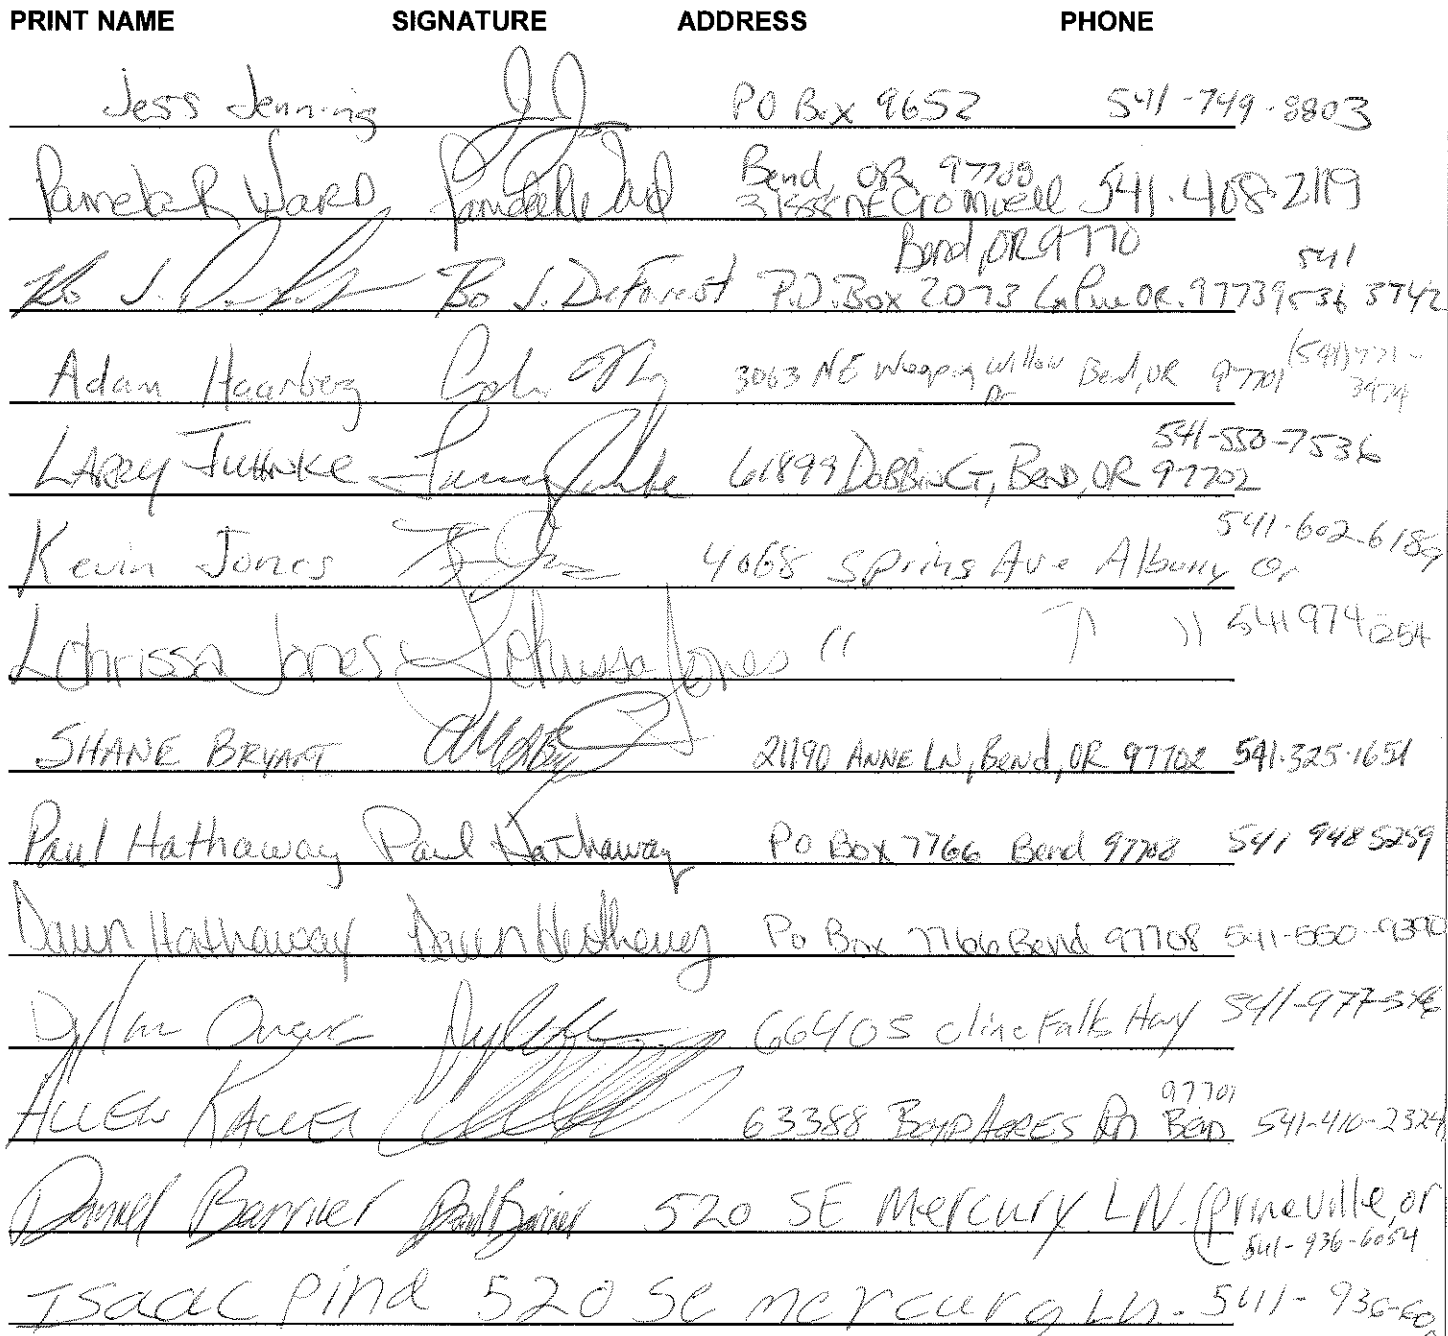 PRINT NAME SIGNATURE ADDRESS PHONE
Jess Jenning JJ PO Box 9652 541-749-8803
Bend, OR 97708
Pamela R WARD Pamela R Ward NE Cromwell 541.408.2119
Bend, OR 9770
541
Bo J. Bo J. DeForest P.O. Box 2073 La Pine OR. 97739 536 3742
Adam Haarberg 3063 NE Weeping Willow Dr Bend, OR 97701 (541)771-
3974
541-550-7536
LARRY JUHNKE Larry Juhnke 61899 DOBBIN CT, BEND, OR 97702
541-602-6189
Kevin Jones 4068 Spring Ave Albany Or
Lchrissa Jones Lchrissa Jones " ↑ " 541 974 0254
SHANE BRYANT 21190 ANNE LN, Bend, OR 97702 541.325.1651
Paul Hathaway Paul Hathaway PO Box 7766 Bend 97708 541 948 5259
Dawn Hathaway Dawn Hathaway Po Box 7766 Bend 97708 541-550-9390
Dylan 66405 Cline Falls Hwy 541-977-
97701
ALLEN 63388 BOYD ACRES RD Bend 541-410-2324
Daniel Barrier Daniel Barrier 520 SE Mercury LN. (Prineville, or
541-936-6054
Isaac pind 520 SE mercury Ln. 541-936-60